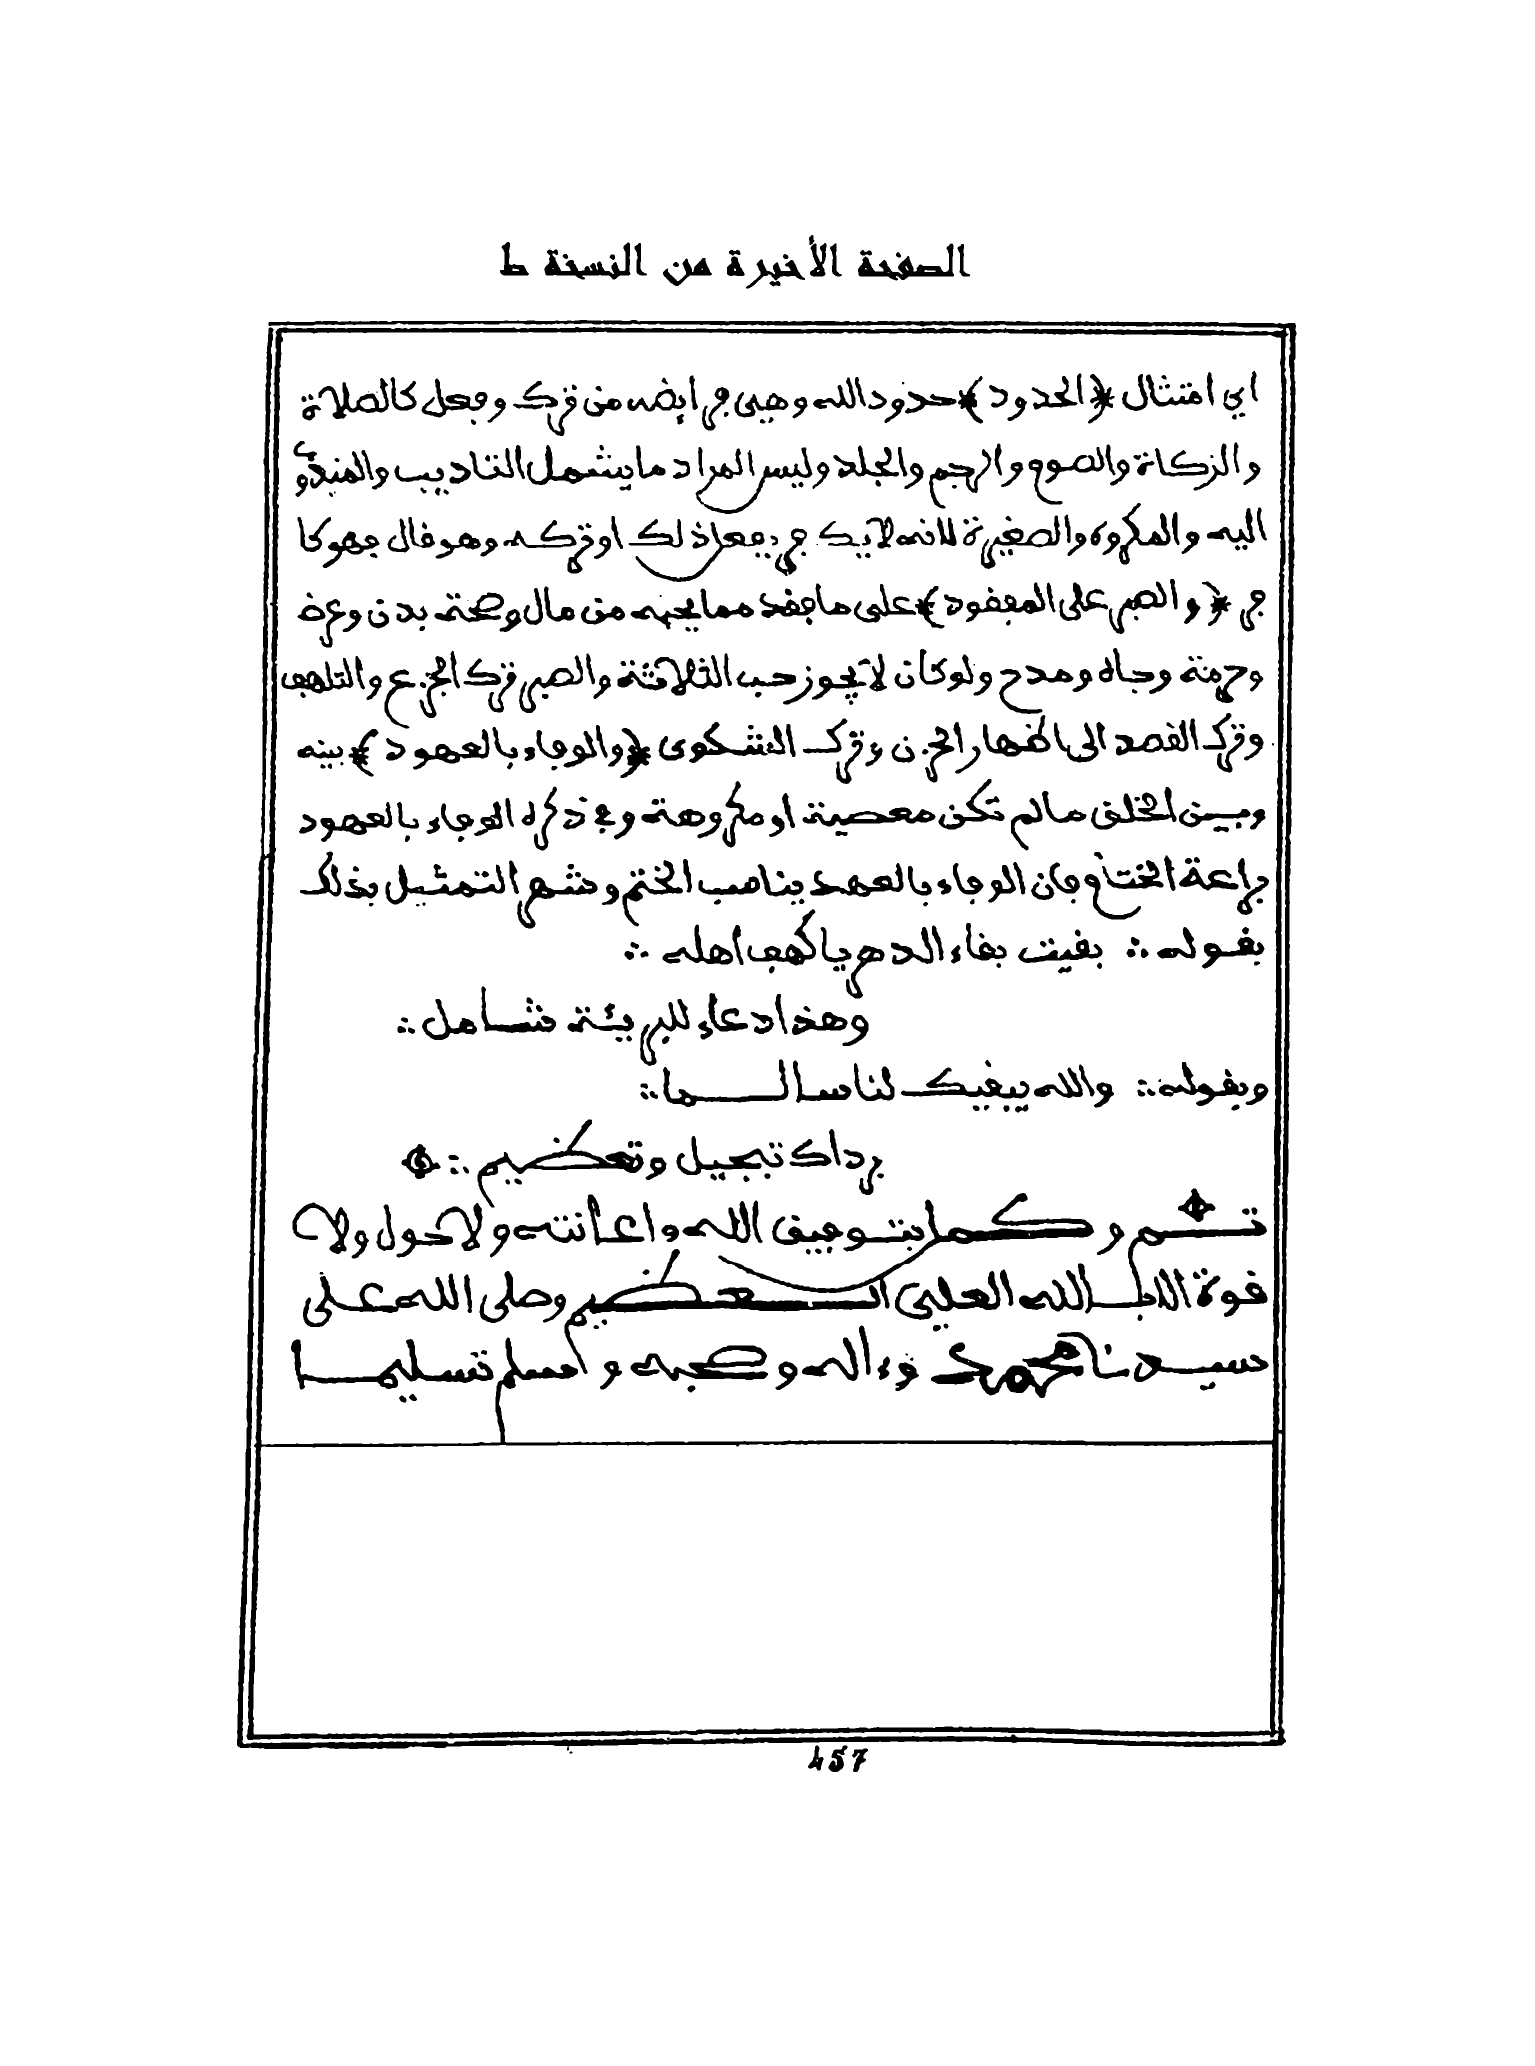 الصفحة الأخيرة من النسخة ط
اي امتثال ﴿الحدود﴾ حدود الله وهي فرايضه من ترك وفعل كالصلاة
والزكاة والصوم والرجم والجلد وليس المراد ما يشمل التاديب والمندوب
اليه والمكروه والصغيرة لانه لا يكفر بفعل ذلك او تركه وهو قال فهو كا
فر ﴿والصبر على المفقود﴾ على ما فقد مما يحبه من مال وصحة بدن وعرض
وحرمة وجاه ومدح ولو كان لا يجوز حب الثلاثة والصبر ترك الجزع والتلهف
وترك القصد الى اظهار الحزن وترك الشكوى ﴿والوفاء بالعهود﴾ بينه
وبين الخلق ما لم تكن معصية او مكروهة وفي ذكره الوفاء بالعهود
براعة الختام فان الوفاء بالعهد يناسب الختم وشهر التمثيل بذلك
بقوله ∴ بقيت بقاء الدهر يا كهف اهله ∴
وهذا دعاء للبريئة شامل ∴
وبقوله ∴ والله يبقيك لنا سالما ∴
برداك تبجيل وتعظيم ∴
تم وكمل بتوفيق الله واعانته ولا حول ولا
قوة الا بالله العلي العظيم وصلى الله على
سيدنا محمد وءاله وصحبه وسلم تسليما
457